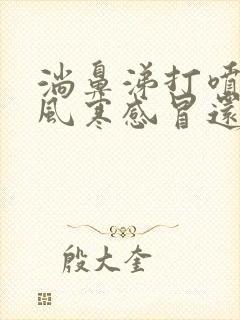 淌鼻涕打噴
風寒感冒還
殷大奎